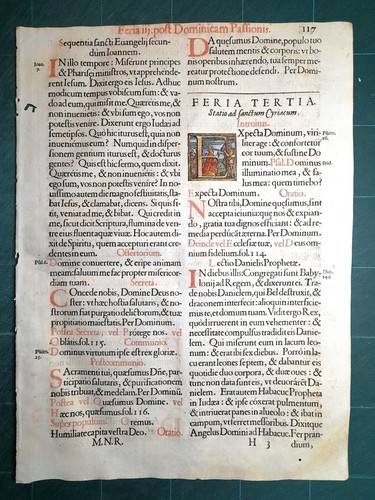 Feria iij. post Dominicam Passionis. 117
Sequentia sancti Euangelij secun-
dùm Ioannem.
Ioan. 7.
IN illo tempore: Miserunt principes
& Pharisęi ministros, vt apprehende-
rent Iesum. Dixit ergo eis Iesus. Adhuc
modicum tempus vobiscum sum: & va-
do ad eum, qui misit me. Quęretis me, &
non inuenietis: & vbi sum ego, vos non
potestis venire. Dixerunt ergo Iudæi ad
semetipsos. Quò hic iturus est, quia non
inueniemus eum? Nunquid in dispersio-
nem gentium iturus est, & docturus
gentes? Quis est hic sermo, quem dixit.
Quæretis me, & non inuenietis: & vbi
ego sum, vos non potestis venire? In no-
uissimo autem die magno festiuitatis, sta-
bat Iesus, & clamabat, dicens. Si quis si-
tit, veniat ad me, & bibat. Qui credit in
me, sicut dicit Scriptura, flumina de ven-
tre eius fluent aquæ viuæ. Hoc autem di-
xit de Spiritu, quem accepturi erant cre-
dentes in eum. Offertorium.
Psal. 6.
Domine conuertere, & eripe animam
meam: saluum me fac propter misericor-
diam tuam. Secreta.
COncede nobis, Domine Deus no-
ster: vt hæc hostia salutaris, & no-
strorum fiat purgatio delictorum, & tuæ
propitiatio maiestatis. Per Dominum.
Postea Secreta, vel Protege nos. vel
Oblatis. fol. 115. Communio.
Psalm. 23.
Dominus virtutum ipse est rex gloriæ.
Postcommunio.
SAcramenti tui, quæsumus Dñe, par-
ticipatio salutaris, & purificationem
nobis tribuat, & medelam. Per Dominũ.
Postea vel Quæsumus Domine. vel
Hæc nos, quæsumus. fol. 116.
Super populum. Oremus.
Humiliate capita vestra Deo. Oratio.
M.N.R.
DA quæsumus Domine, populo tuo
salutem mentis & corporis: vt bo-
nis operibus inhærendo, tua semper me-
reatur protectione defendi. Per Domi-
num nostrum.
FERIA TERTIA.
Statio ad sanctum Cyriacum.
Introitus.
EXpecta Dominum, viri-
liter age: & confortetur
cor tuum, & sustine Do-
minum. Psal. Dominus
illuminatio mea, & sa-
lus mea: quem timebo?
Expecta Dominum. Oratio.
NOstra tibi, Domine quęsumus, sint
accepta ieiunia: quę nos & expian-
do, gratia tua dignos efficiant: & ad re-
media perducãt æterna. Per Dominum.
Deinde vel Ecclesiæ tuæ, vel Deus om-
nium fidelium. fol. 114.
Lectio Danielis Prophetæ.
IN diebus illis: Congregati sunt Baby-
lonij ad Regem, & dixerunt ei. Tra-
de nobis Danielem, qui Bel destruxit, &
draconem interfecit: alioqui interficie-
mus te, et domum tuam. Vidit ergo Rex,
quòd irruerent in eum vehementer: &
necessitate compulsus tradidit eis Danie-
lem. Qui miserunt eum in lacum leo-
num: & erat ibi sex diebus. Porrò in la-
cu erant leones septem, & dabantur eis
quotidie duo corpora, & duæ oues: &
tunc non data sunt eis, vt deuorarẽt Da-
nielem. Erat autem Habacuc Propheta
in Iudæa: & ipse coxerat pulmentum,
& intriuerat panes in alueolo: & ibat in
campum, vt ferret messoribus. Dixitque
Angelus Domini ad Habacuc. Fer pran-
H 3 dium,